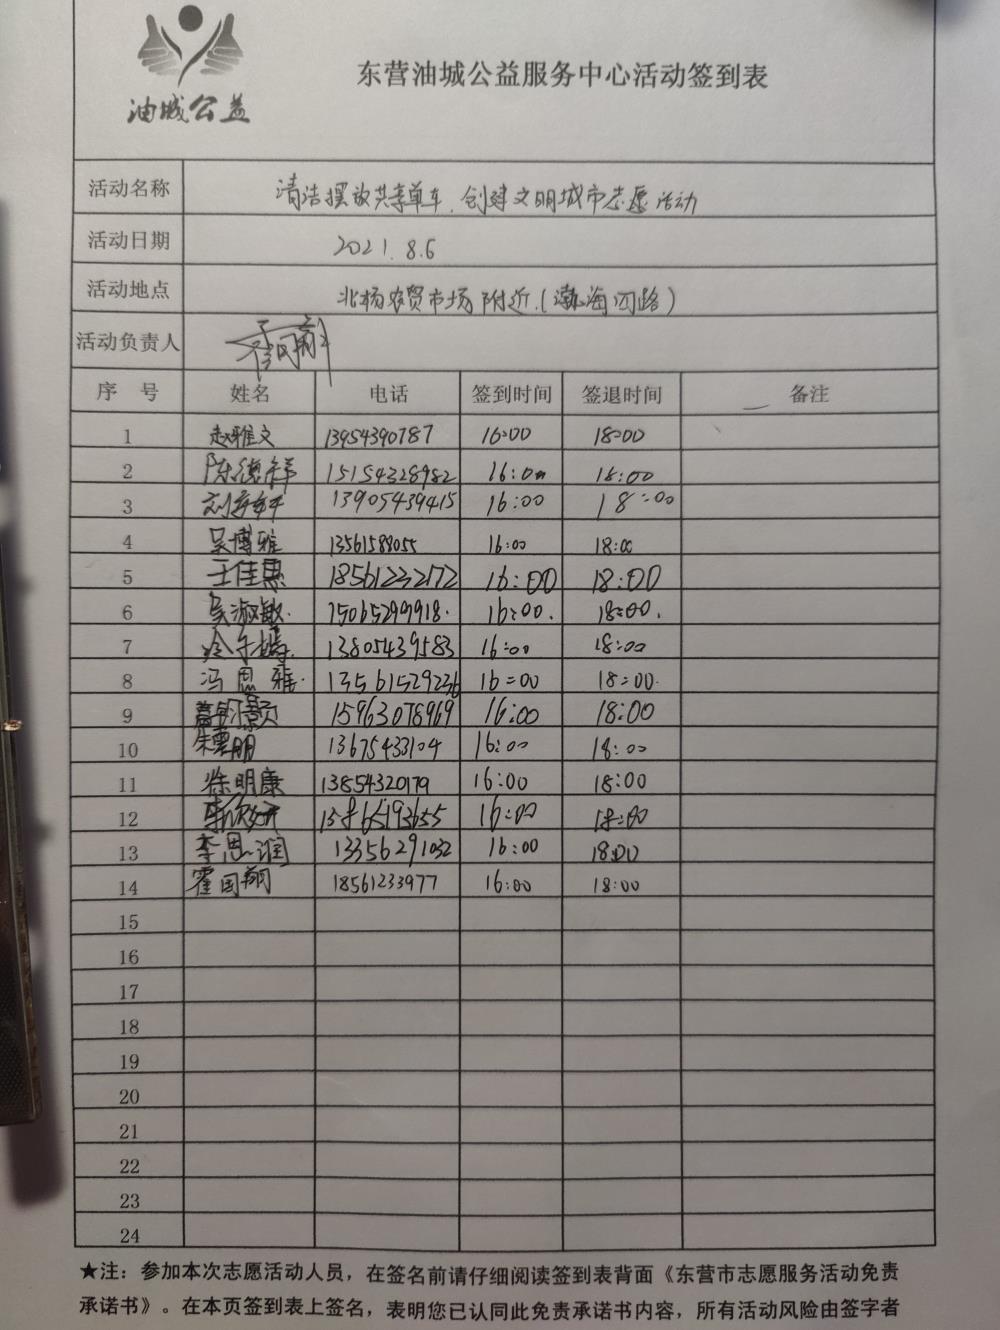 油城公益
东营油城公益服务中心活动签到表
活动名称 清洁摆放共享单车、创建文明城市志愿活动
活动日期 2021.8.6
活动地点 北杨农贸市场附近(渤海四路)
活动负责人
序号 姓名 电话 签到时间 签退时间 备注
1 赵雅文 13954390787 16:00 18:00
2 陈德祥 15154328982 16:00 18:00
3 13905439415 16:00 18:00
4 吴博雅 13561588055 16:00 18:00
5 王佳惠 18561232172 16:00 18:00
6 吴淑敏 15065299918 16:00 18:00
7 13805439583 16:00 18:00
8 冯思雅 13561529236 16:00 18:00
9 15963078969 16:00 18:00
10 13675433104 16:00 18:00
11 徐明康 13854320179 16:00 18:00
12 16:00 18:00
13 李思润 13356291032 16:00 18:00
14 霍国翔 18561233977 16:00 18:00
15
16
17
18
19
20
21
22
23
24
★注：参加本次志愿活动人员，在签名前请仔细阅读签到表背面《东营市志愿服务活动免责
承诺书》。在本页签到表上签名，表明您已认同此免责承诺书内容，所有活动风险由签字者